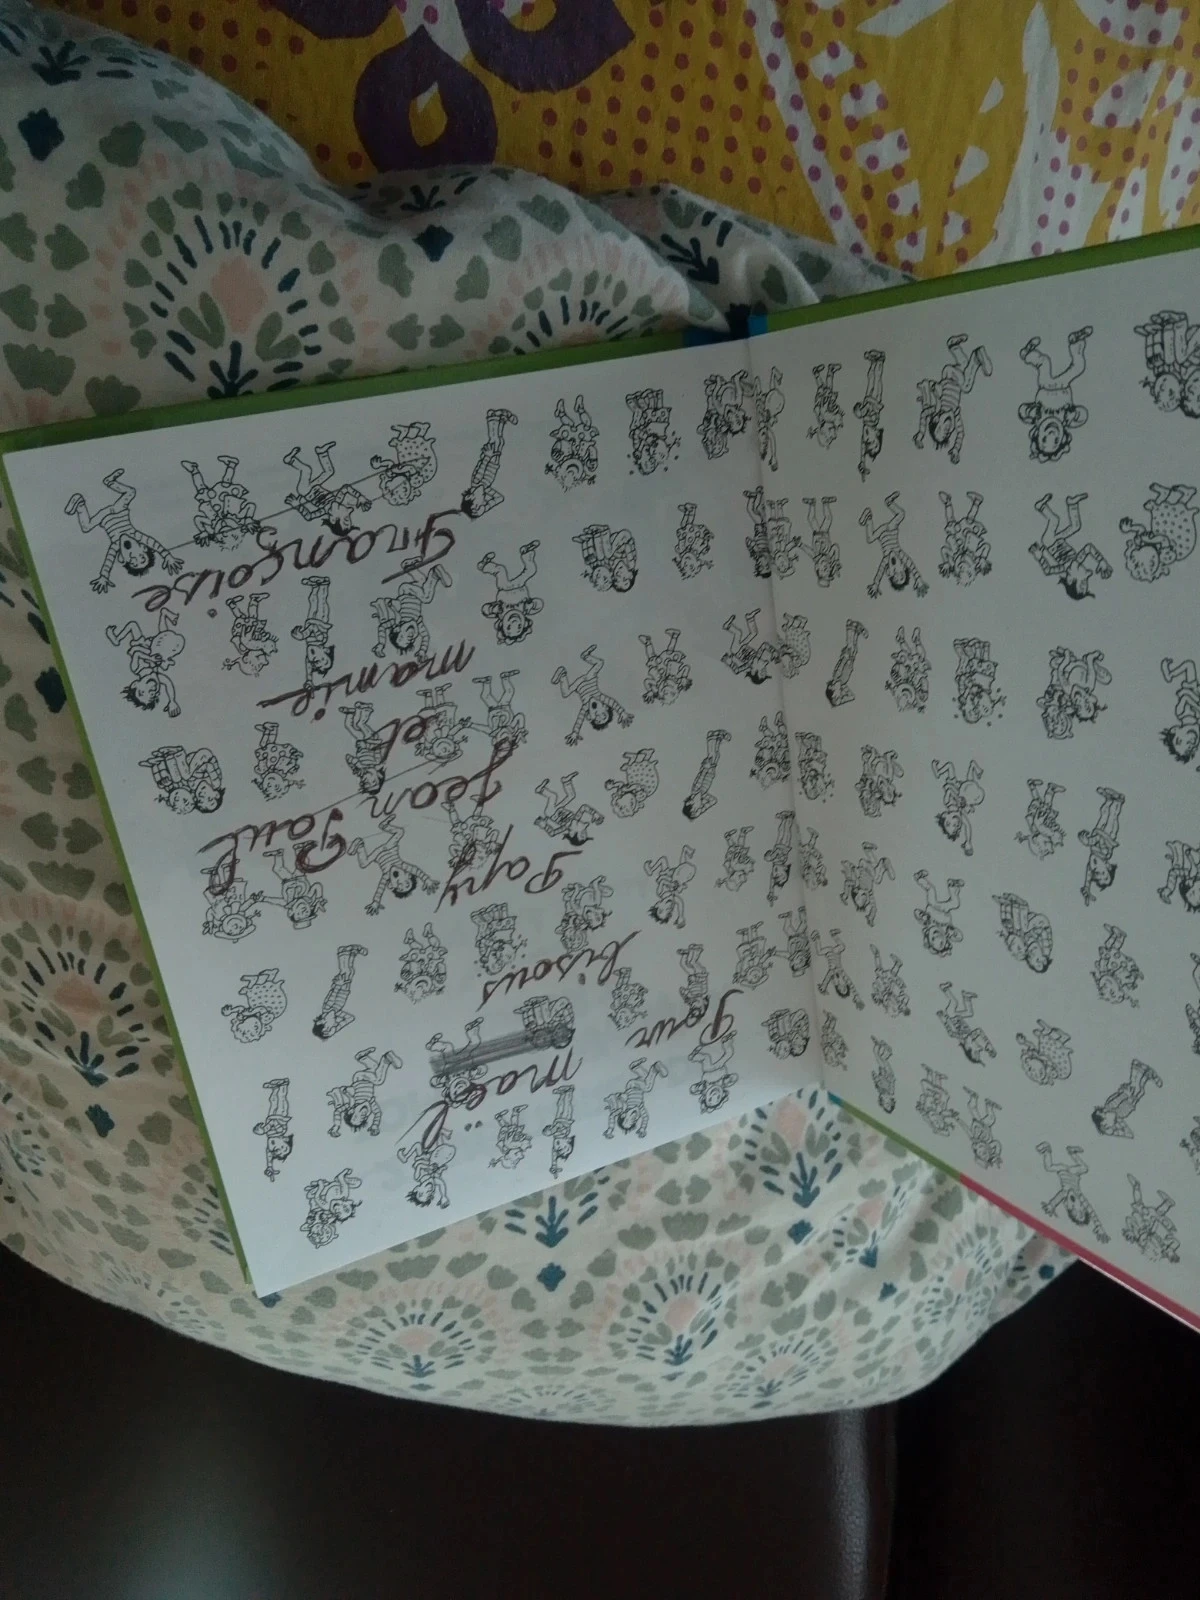 Pour maël
bisous
Papy
Jean Paul
et
mamie
Françoise